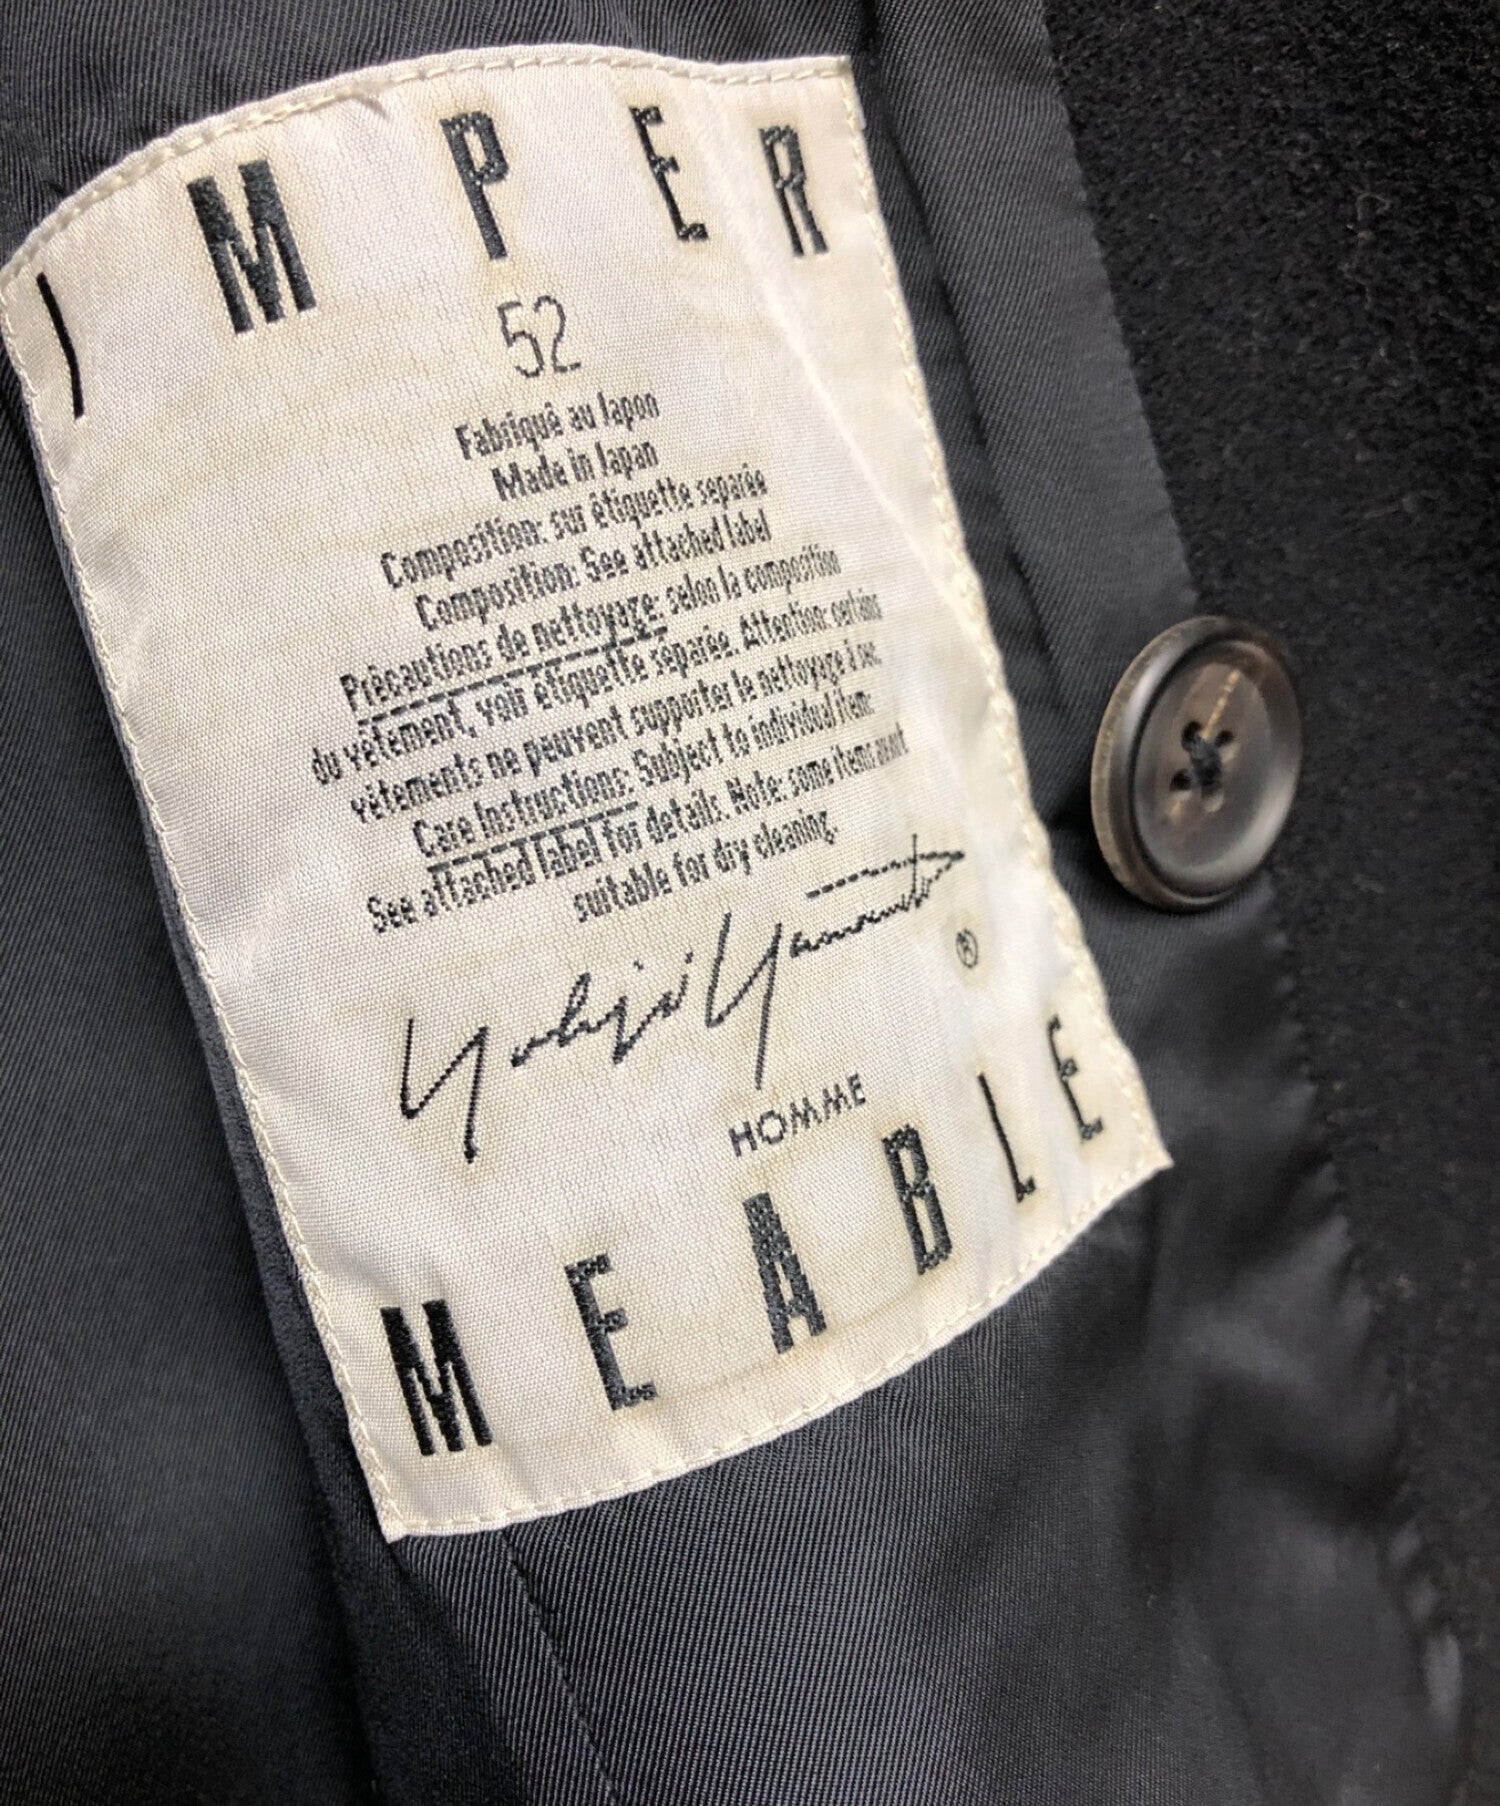 IMPER
52
Fabriqué au Japon
Made in Japan
Composition: sur étiquette separée
Composition: See attached label
Précautions de nettoyage: selon la composition
du vétement, voir étiquette séparée. Attention: certains
vétements ne peuvent supporter le nettoyage à sec.
Care Instructions: Subject to individual item:
See attached label for details. Note: some items are not
suitable for dry cleaning.
Yohji Yamamoto
®
HOMME
MEABLE